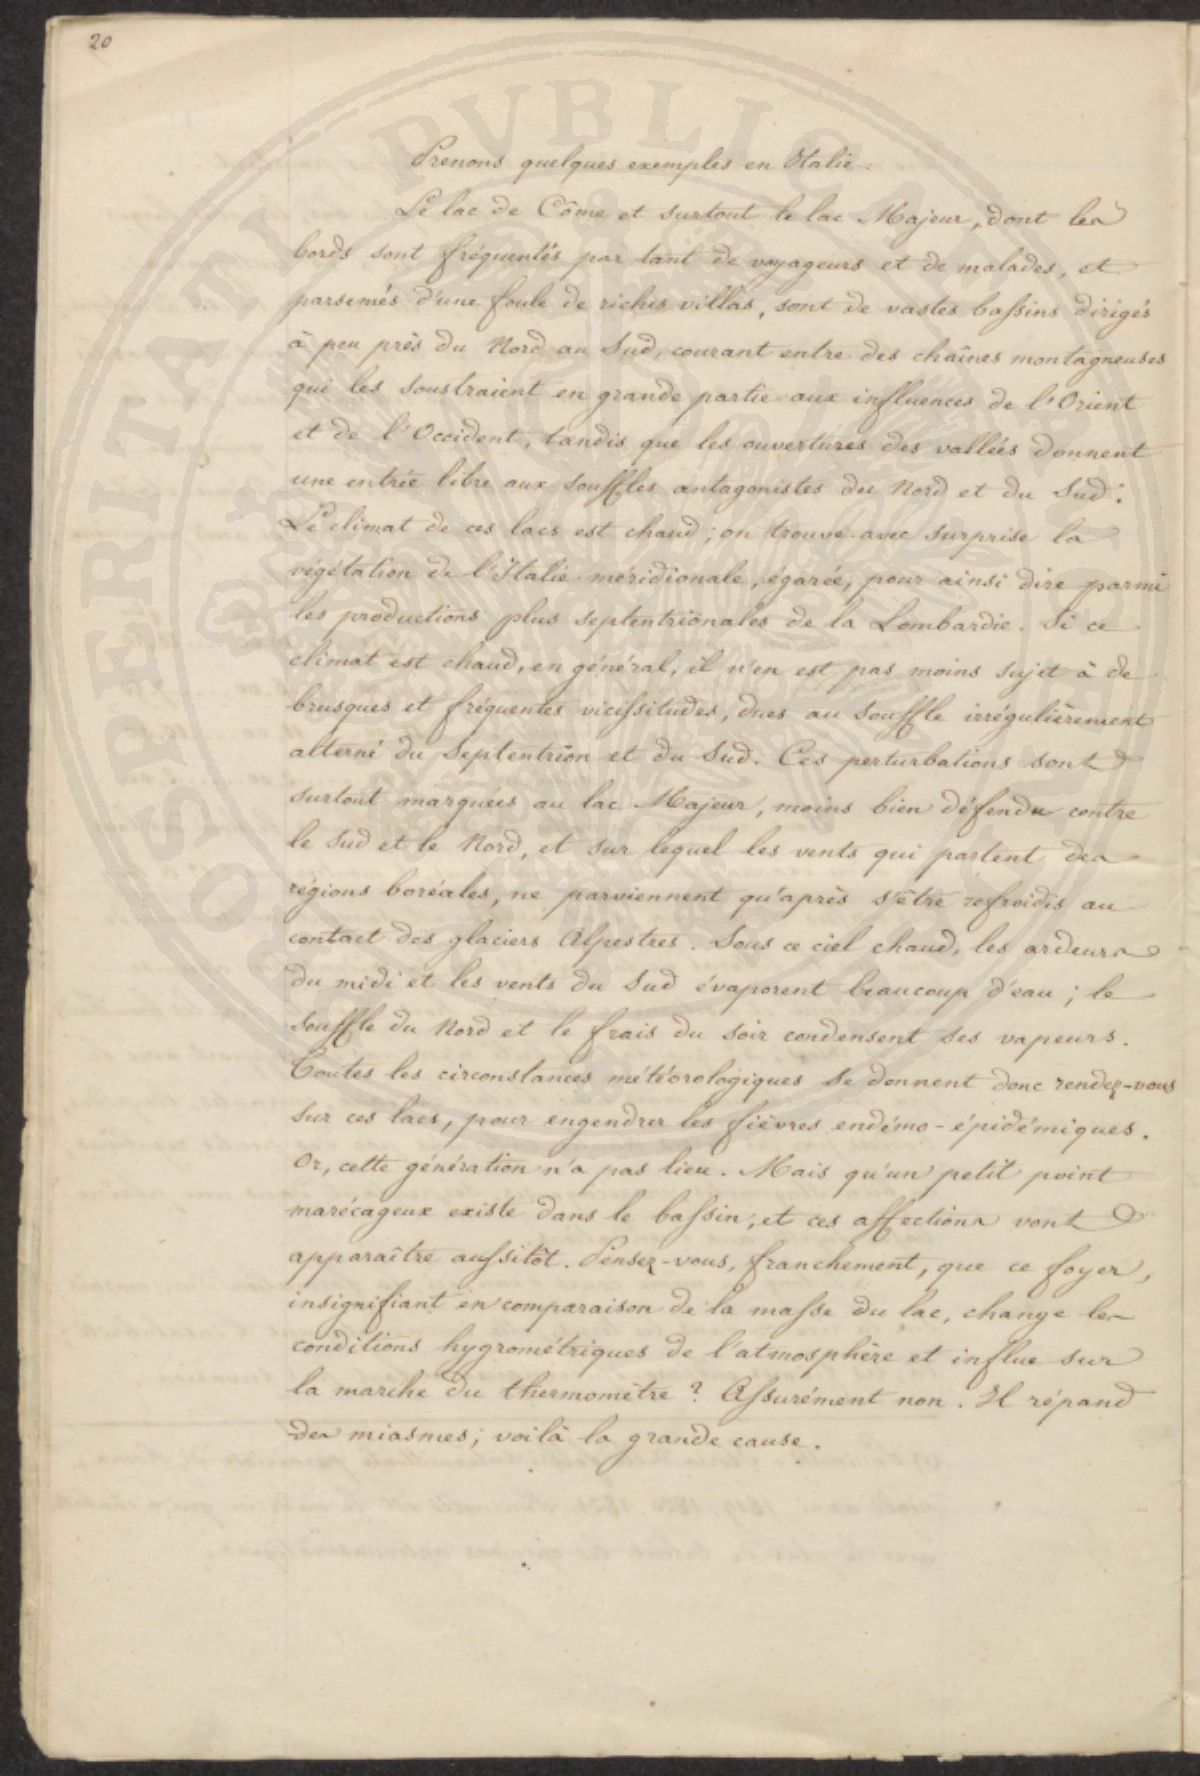 20
Prenons quelques exemples en Italie :
Le lac de Côme et surtout le lac Majeur, dont les
bords sont fréquentés par tant de voyageurs et de malades, et
parsemés d'une foule de riches villas, sont de vastes bassins dirigés
à peu près du Nord au Sud, courant entre des chaînes montagneuses
qui les soustraient en grande partie aux influences de l'Orient
et de l'Occident, tandis que les ouvertures des vallées donnent
une entrée libre aux souffles antagonistes du Nord et du Sud.
Le climat de ces lacs est chaud ; on trouve avec surprise la
végétation de l'Italie méridionale, égarée, pour ainsi dire parmi
les productions plus septentrionales de la Lombardie. Si ce
climat est chaud, en général, il n'en est pas moins sujet à de
brusques et fréquentes vicissitudes, dues au souffle irrégulièrement
alterné du Septentrion et du Sud. Ces perturbations sont
surtout marquées au lac Majeur, moins bien défendu contre
le Sud et le Nord, et sur lequel les vents qui partent des
régions boréales, ne parviennent qu'après s'être refroidis au
contact des glaciers Alpestres. Sous ce ciel chaud, les ardeurs
du midi et les vents du Sud évaporent beaucoup d'eau ; le
souffle du Nord et le frais du soir condensent ses vapeurs.
Toutes les circonstances météorologiques se donnent donc rendez-vous
sur ces lacs, pour engendrer les fièvres endémo-épidémiques.
Or, cette génération n'a pas lieu. Mais qu'un petit point
marécageux existe dans le bassin, et ces affections vont
apparaître aussitôt. Pensez-vous, franchement, que ce foyer,
insignifiant en comparaison de la masse du lac, change les
conditions hygrométriques de l'atmosphère et influe sur
la marche du thermomètre ? Assurément non. Il répand
des miasmes ; voilà la grande cause.
PROSPERITATI PVBLICAE